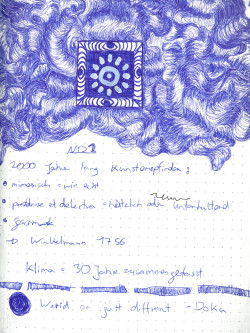 2000 Jahre lang Kunstempfinden:
mimesisch = wie echt
prodesse et delectare = nützlich oder unterhaltend
→ Winkelmann 1756
Klima = 30 Jahre zusammengefasst
Weird or just different - Doka